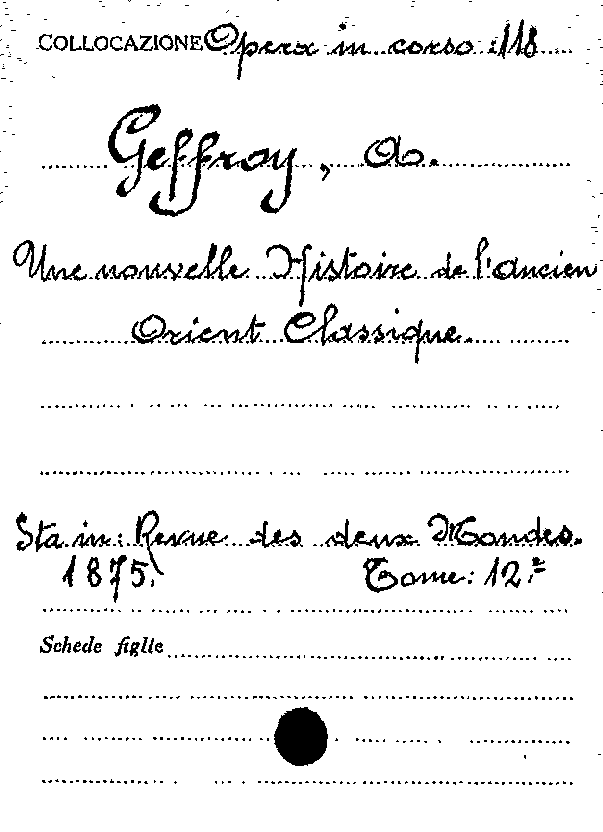 COLLOCAZIONE Opera in corso 118
Geffroy, A.
Une nouvelle Histoire de l'ancien
Orient Classique.
Sta in: Revue des deux Mondes.
1875. Tome: 12.º
Schede figlie